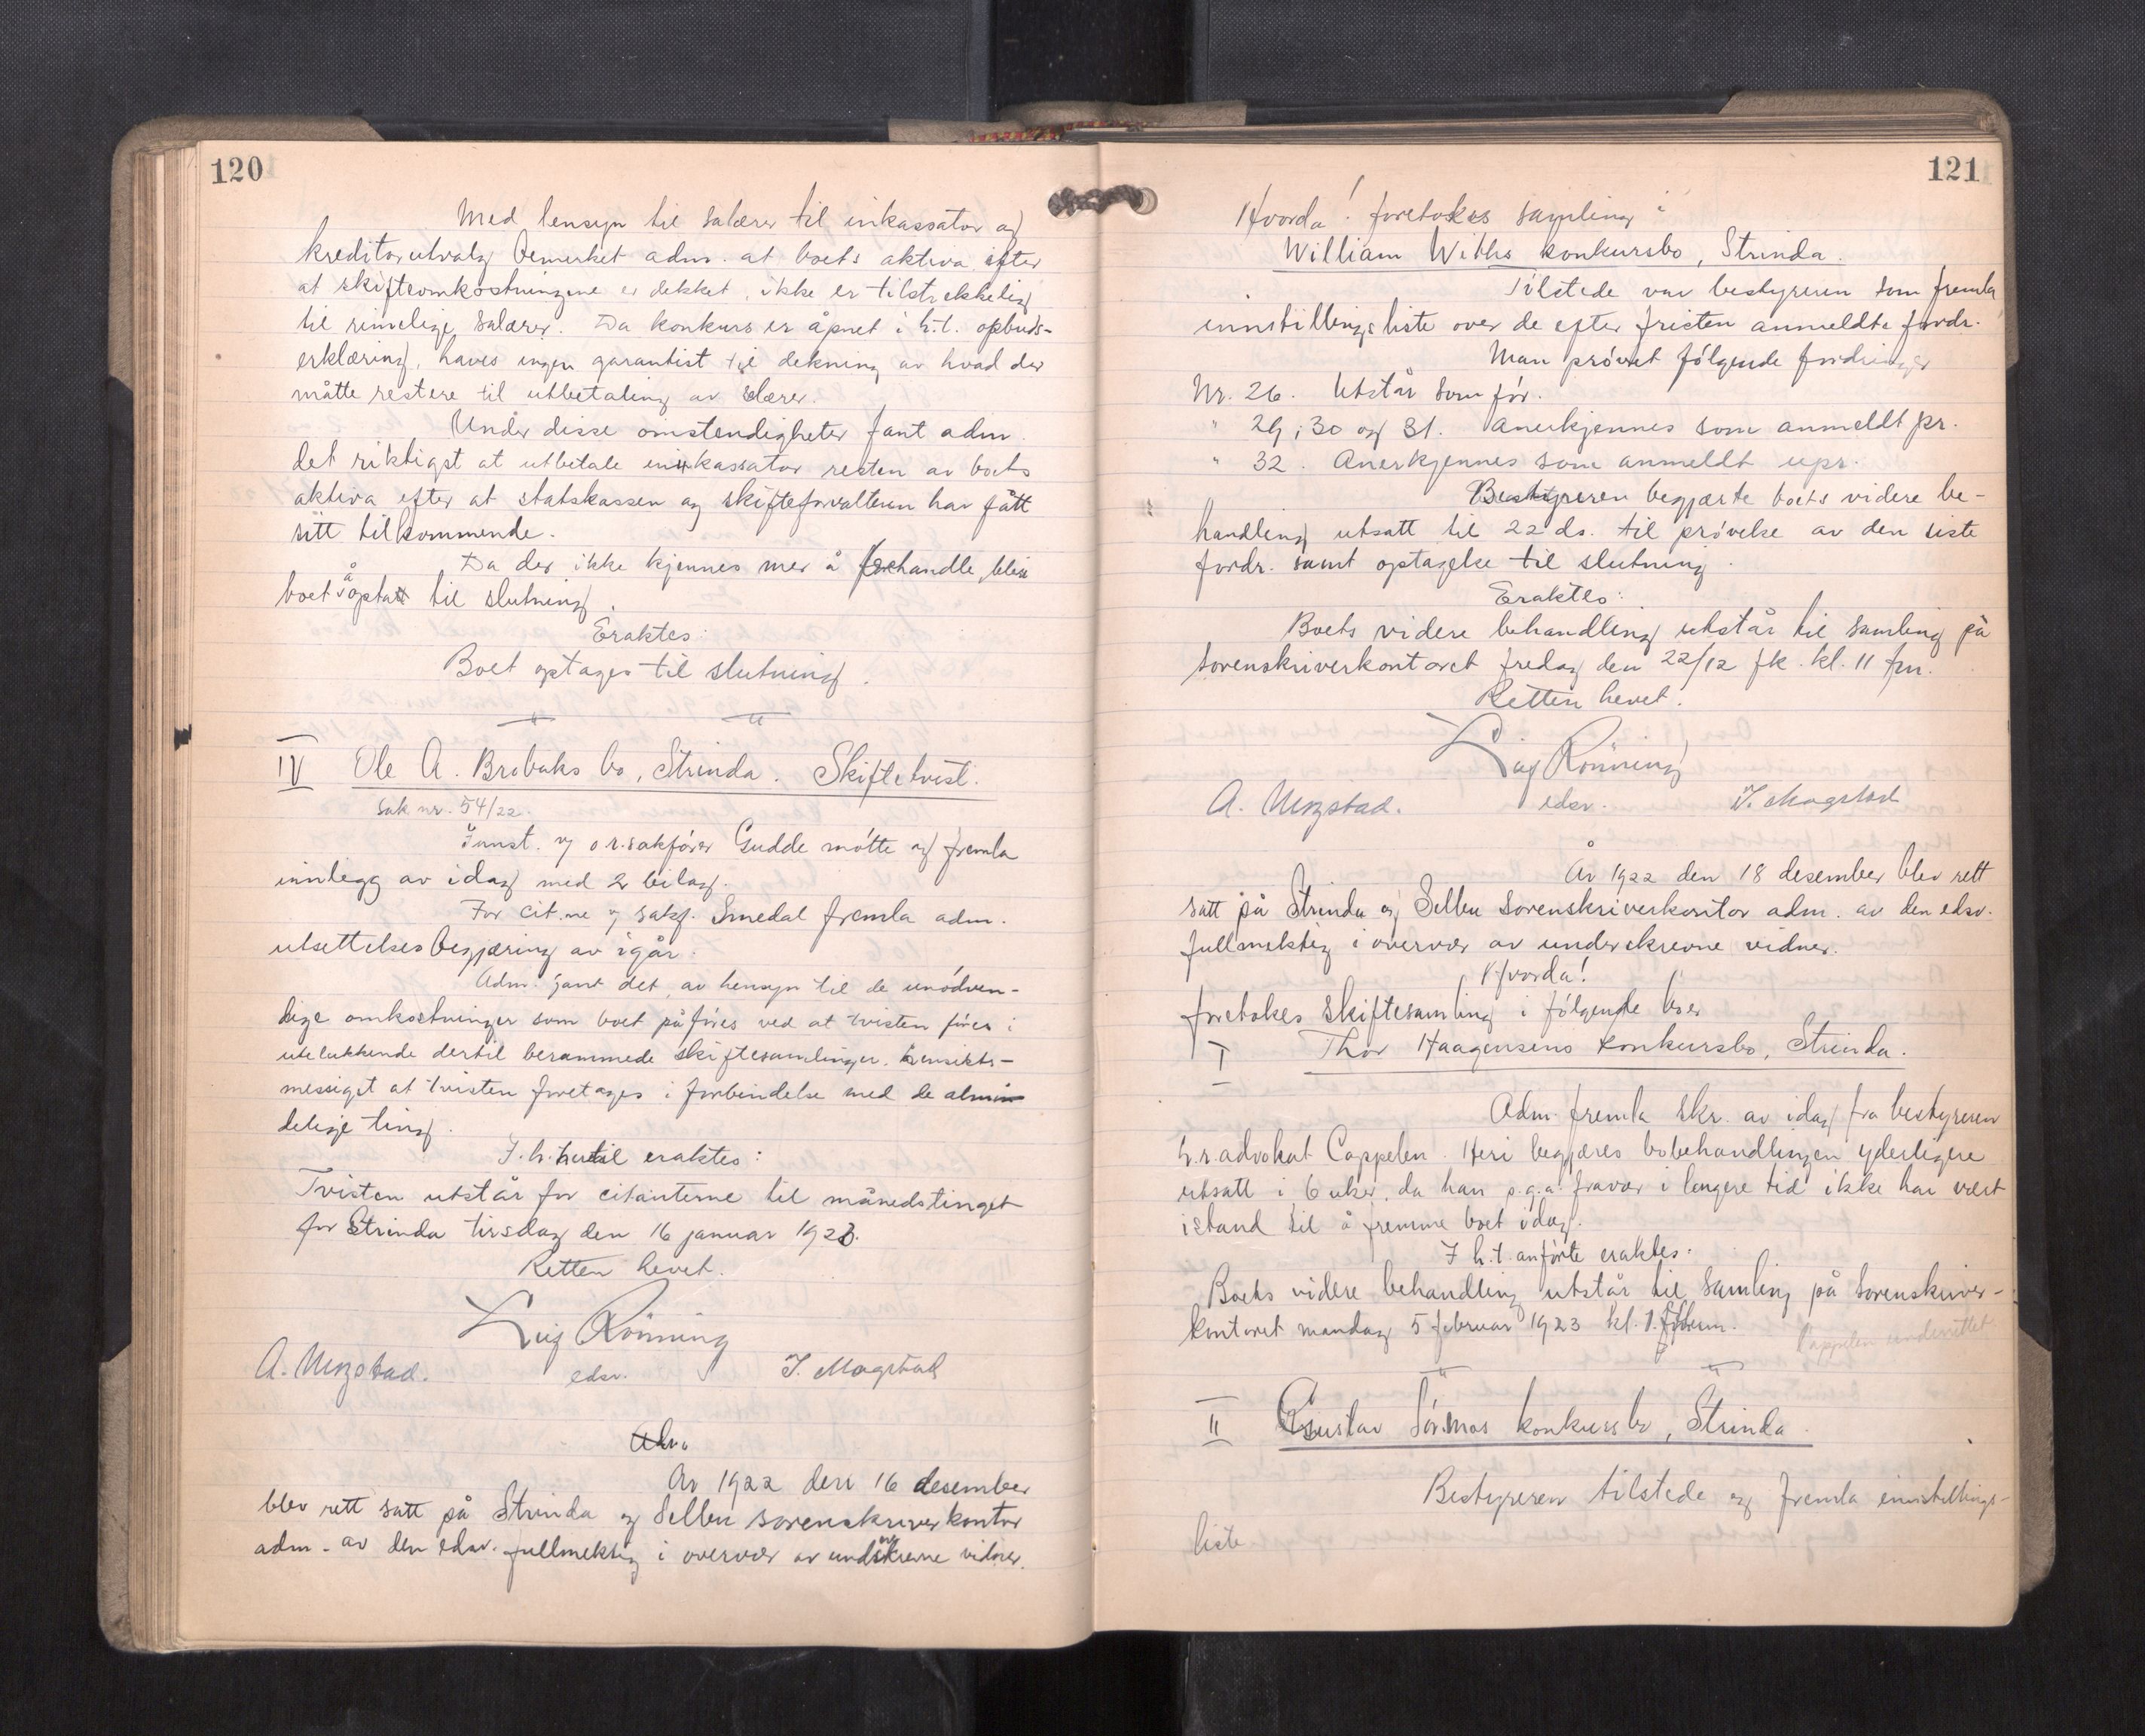 120
Med hensyn til salærer til inkassator og
kreditorutvalg bemerket adm. at boets aktiva efter
at skifteomkostningene er dekket, ikke er tilstrekkelig
til rimelige salærer. Da konkurs er åpnet i h.t. opbuds-
erklæring, haves ingen garantist til dekning av hvad der
måtte restere til utbetaling av slærer.
Under disse omstendigheter fant adm.
det riktigst at utbetale inkassator resten av boets
aktiva efter at statskassen og skifteforvalteren har fått
sitt tilkommende.
Da der ikke kjennes mer å forhandle, blev
boet å optatt til slutning.
Eraktes:
Boet optages til slutning.
IV Ole A. Brobaks bo, Strinda. Skiftetvist.
Sak nr. 54/22.
Innst. v/ o.r.sakfører Gudde møtte og fremla
innlegg av idag med 2 bilag.
For cit.ne v/ sakf. Smedal fremla adm.
utsettelsesbegjæring av igår.
Adm. fant det, av hensyn til de unødven-
dige omkostninger som boet påføres ved at tvisten føres i
utelukkende dertil berammede skiftesamlinger, hensikts-
messigst at tvisten foretages i forbindelse med de almin
delige ting.
I h. hertil eraktes:
Tvisten utstår for citanterne til månedstinget
for Strinda tirsdag den 16 januar 1923.
Retten hevet.
Rönning
A. Ugstad. edsv. I. Mogstad
År 1922 den 16 desember
blev rett satt på Strinda og Selbu sorenskriverkontor
adm. av den edsv. fullmektig i overvær av underskrevne vidner.
121
Hvorda! foretokes samling i
William Withs konkursbo, Strinda.
Tilstede var bestyreren som fremla
innstillingsliste over de efter fristen anmeldte fordr.
Man prøvet følgende fordringer
Nr. 26. Utstår som før.
" 29, 30 og 31. Anerkjennes som anmeldt pr.
" 32. Anerkjennes som anmeldt upr.
Bestyreren begjærte boets videre be-
handling utsatt til 22 ds. til prøvelse av den siste
fordr. samt optagelse til slutning.
Eraktes:
Boets videre behandling utstår til samling på
sorenskriverkontoret fredag den 22/12 fk. kl. 11 fm.
Retten hevet.
Rönning
A. Ugstad. edsv. I. Mogstad
År 1922 den 18 desember blev rett
satt på Strinda og Selbu sorenskriverkontor adm. av den edsv.
fullmektig i overvær av underskrevne vidner.
Hvorda!
foretokes skiftesamling i følgende boer
I Thor Haagensens konkursbo, Strinda.
Adm. fremla skr. av idag fra bestyreren
h.r.advokat Cappelen. Heri begjæres bobehandlingen yderligere
utsatt i 6 uker, da han p.g.a. fravær i lengere tid ikke har vært
istand til å fremme boet idag.
I h.t. anførte eraktes:
Boets videre behandling utstår til samling på sorenskriver-
kontoret mandag 5 februar 1923 kl. 1
Cappelen underrettet
II Gustav Sörmos konkursbo, Strinda.
Bestyreren tilstede og fremla innstillings-
liste